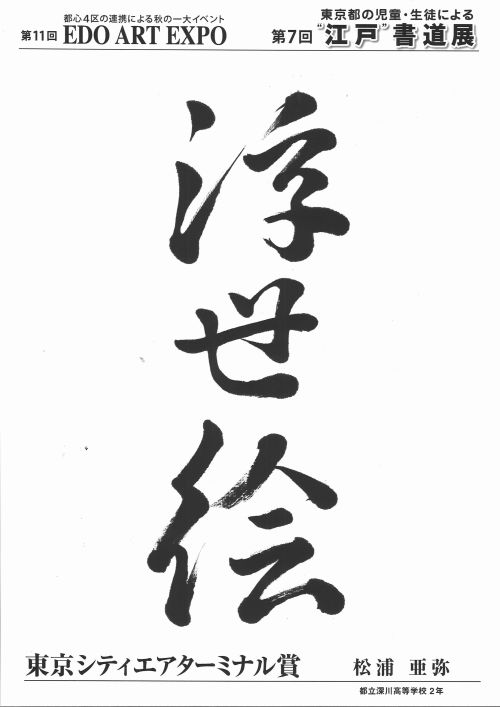 都心4区の連携による秋の一大イベント
第11回 EDO ART EXPO
東京都の児童・生徒による
第7回 "江戸"書道展
浮世絵
東京シティエアターミナル賞
松浦 亜弥
都立深川高等学校 2年